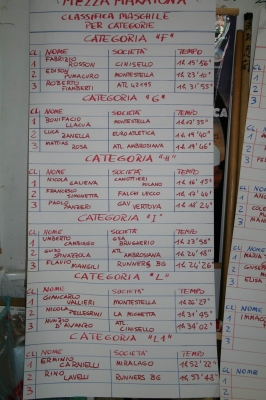 MEZZA MARATONA
CLASSIFICA MASCHILE
PER CATEGORIE
CATEGORIA "F"
CL NOME SOCIETA' TEMPO
1 FABRIZIO ROSSON CINISELLO 1h 15' 56"
2 EDISON PUMACURO MONTESTELLA 1h 23' 10"
3 ROBERTO FIAMBERTI ATL 42195 1h 31' 55"
CATEGORIA "G"
CL NOME SOCIETA' TEMPO
1 BONIFACIO LLACUA MONTESTELLA
2 LUCA ZANELLA EUROATLETICA 1h 19' 40"
3 MATTIAS ROSA ATL AMBROSIANA 1h 19' 46"
CATEGORIA "H"
CL NOME SOCIETA' TEMPO
1 NICOLA GALIENA CANOTTIERI MILANO 1h 16' 15"
2 FRANCESCO SIMONETTA FALCHI LECCO 1h 17' 44"
3 PAOLO PANZERI GAV VERTOVA 1h 18' 24"
CATEGORIA "I"
CL NOME SOCIETA' TEMPO
1 UMBERTO CAMBIAGO GSA BRUGHERIO 1h 23' 58"
2 GUIDO SPINAZZOLA ATL AMBROSIANA 1h 24' 18"
3 FLAVIO MANGILI RUNNERS BG 1h 24' 26"
CATEGORIA "L"
CL NOME SOCIETA' TEMPO
1 GIANCARLO VALLIERI MONTESTELLA 1h 26' 27"
2 NICOLA PELLEGRINI LA MICHETTA 1h 31' 45"
3 NUNZIO D'AVANZO ATL CINISELLO 1h 34' 02"
CATEGORIA "L1"
CL NOME SOCIETA' TEMPO
1 ERMINIO CARNIELLI MIRALAGO 1h 52' 22"
2 RINO LAVELLI RUNNERS BG 1h 57' 48"
3
CL NOME
1
2
3
CL NOME
1 MARIA
2 GIUSEP
3 ELISA
CL NOME
1
2
3